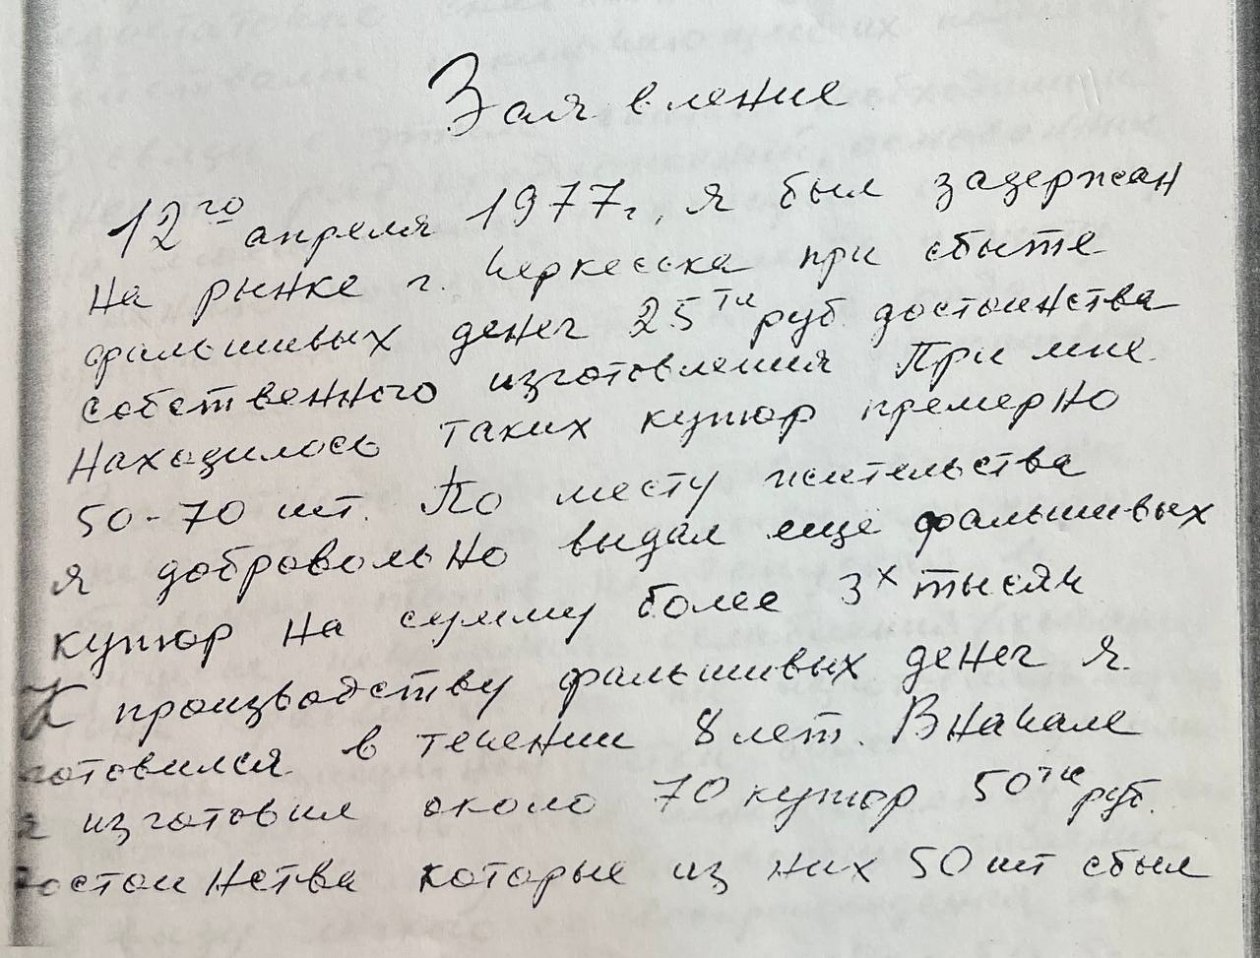 Заявление
12го апреля 1977г, я был задержан
на рынке г. Черкесска при сбыте
фальшивых денег 25ти руб достоинства
собственного изготовления При мне
находилось таких купюр премерно
50-70 шт. По месту жительства
я добровольно выдал еще фальшивых
купюр на сумму более 3х тысяч
К производству фальшивых денег я
готовился в течении 8 лет. Вначале
я изготовил около 70 купюр 50ти руб.
достоинства которые из них 50 шт сбыл